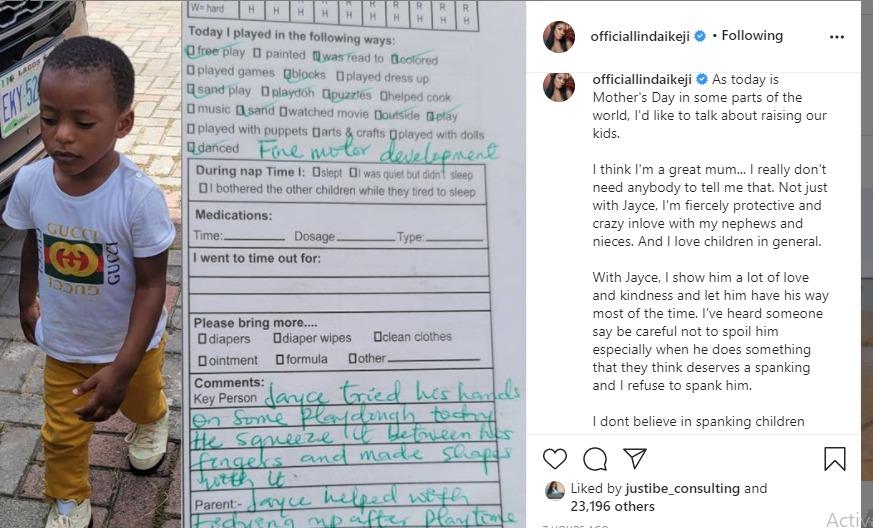 LAGOS
EKY-52
GUCCI
GUCCI
GUCCI
GUCCI
W= hard H H H R H R H R H R H R H
Today I played in the following ways:
free play painted was read to colored
played games blocks played dress up
sand play playdoh puzzles helped cook
music sand watched movie outside play
played with puppets arts & crafts played with dolls
danced Fine motor development
During nap Time I: slept I was quiet but didn't sleep
I bothered the other children while they tired to sleep
Medications:
Time: Dosage Type:
I went to time out for:
Please bring more....
diapers diaper wipes clean clothes
ointment formula other
Comments:
Key Person Jayce tried his hands
on some playdough today.
He squeeze it between his
fingers and made shapes
with it.
Parent:- Jayce helped with
tidying up after playtime
officiallindaikeji • Following
officiallindaikeji As today is
Mother's Day in some parts of the
world, I'd like to talk about raising our
kids.
I think I'm a great mum... I really don't
need anybody to tell me that. Not just
with Jayce, I'm fiercely protective and
crazy inlove with my nephews and
nieces. And I love children in general.
With Jayce, I show him a lot of love
and kindness and let him have his way
most of the time. I've heard someone
say be careful not to spoil him
especially when he does something
that they think deserves a spanking
and I refuse to spank him.
I dont believe in spanking children
Liked by justibe_consulting and
23,196 others
7 HOURS AGO
Activ